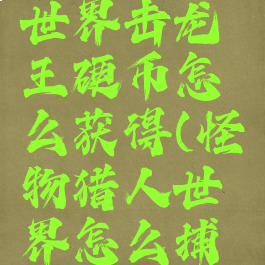 世界击龙
王硬币怎
么获得(怪
物猎人世
界怎么捕